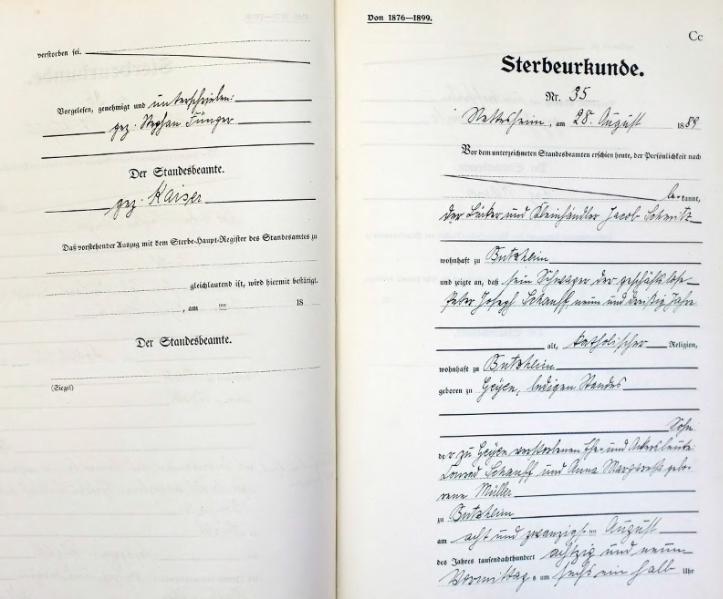 verstorben sei.
Vorgelesen, genehmigt und unterschrieben:
gez. Stephan Jünger
Der Standesbeamte.
gez. Kaiser
Daß vorstehender Auszug mit dem Sterbe-Haupt-Register des Standesamtes zu
gleichlautend ist, wird hiermit bestätigt.
, am ten 18
Der Standesbeamte.
(Siegel)
Von 1876—1899.
Cc
Sterbeurkunde.
Nr. 35
Nettesheim, am 28. August 1889
Vor dem unterzeichneten Standesbeamten erschien heute, der Persönlichkeit nach
be-kannt,
der Bäcker und Kleinhändler Jacob Schmitz
wohnhaft zu Butzheim
und zeigte an, daß sein Schwager der geschäftslose
Peter Joseph Schauff, neun und dreißig Jahre
alt, katholischer Religion,
wohnhaft zu Butzheim
geboren zu Geyen, ledigen Standes
Sohn
der zu Geyen verstorbenen Ehe- und Ackersleute
Conrad Schauff und Anna Margareth gebo-
rene Müller
zu Butzheim
am acht und zwanzigsten August
des Jahres tausendachthundert achtzig und neun
Vormittags um sechs ein halb Uhr